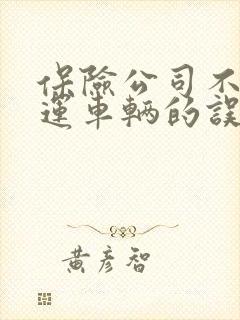 保險公司不
運車輛的誤
黃彥智